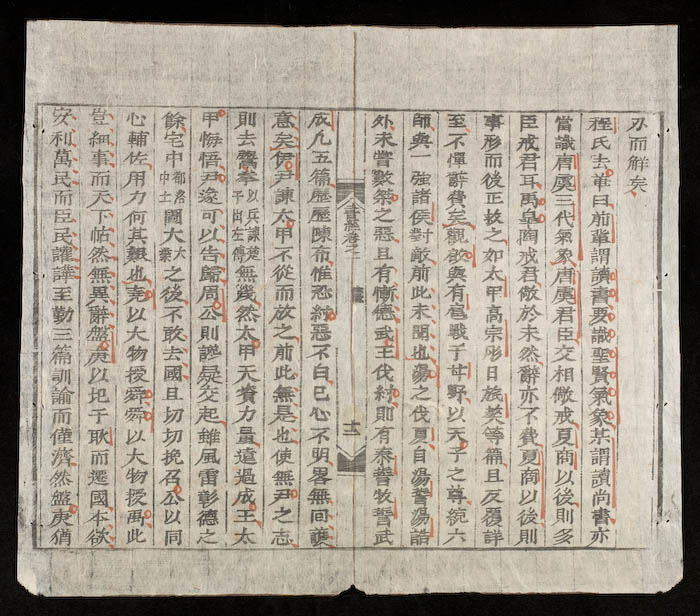 刃而解矣
程氏去華曰前輩謂讀書要識聖賢氣象某謂讀尚書亦
當識唐虞三代氣象唐虞君臣交相儆戒夏商以後則多
臣戒君耳禹臯陶戒君儆於未然辭亦不費夏商以後則
事形而後正救之如太甲高宗肜日旅獒等篇且反覆詳
至不憚辭費矣觀啟與有扈戰于甘野以天子之尊統六
師與一強諸侯對敵前此未聞也湯之伐夏自湯誓湯誥
外未嘗數桀之惡且有慚德武王伐紂即有泰誓牧誓武
卷之一
十二
成凡五篇歷歷陳布惟恐紂惡不白己心不明畧無回護
意矣伊尹諫太甲不從而放之前此無是也使無尹之志
則去鬻拳以兵諫楚子出左傳無幾然太甲天資力量遠過成王太
甲悔悟尹遂可以告歸周公則讒疑交起雖風雷彰德之
餘宅中都洛中土圖大大業之後不敢去國且切切挽召公以同
心輔佐用力何其艱也堯以大物授舜舜以大物授禹此
豈細事而天下帖然無異辭盤庚以圮于耿而遷國本欲
安利萬民而臣民讙譁至勤三篇訓諭而僅濟然盤庚猶